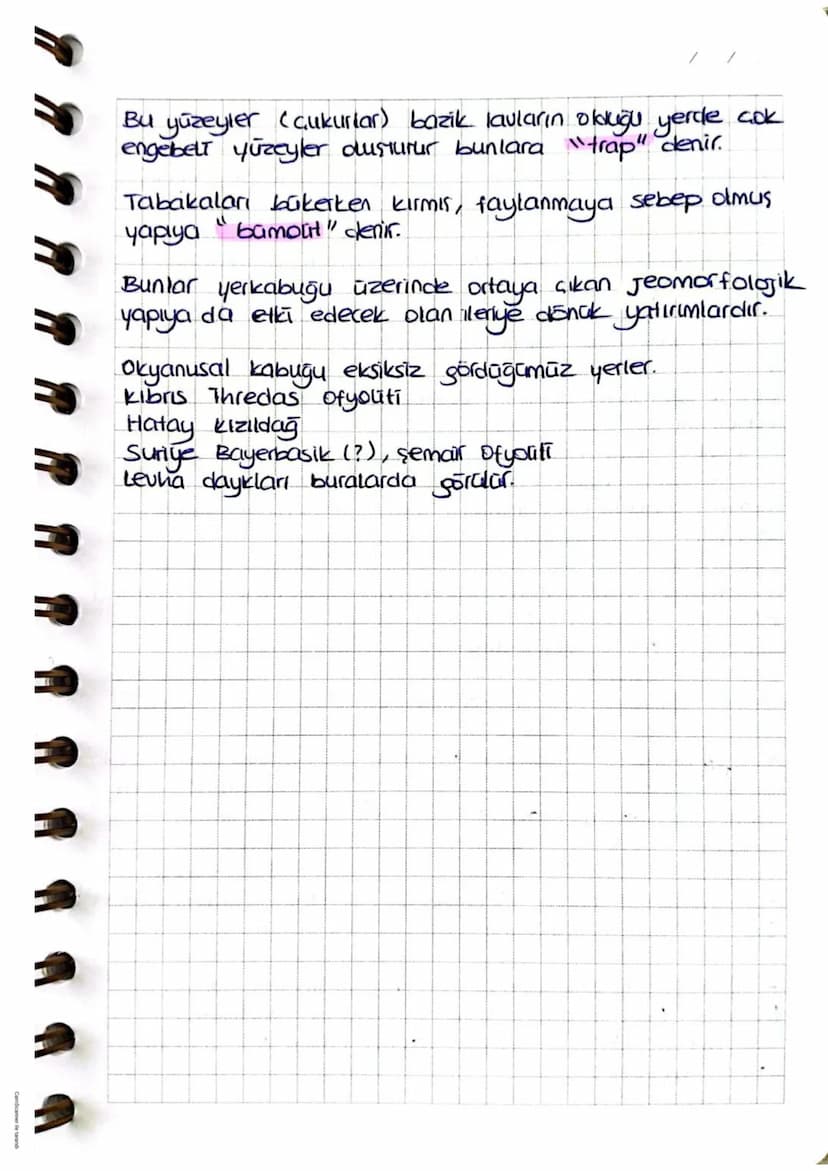 / /
Bu yüzeyler (çukurlar) bazik lavların olduğu yerde çok
engebeli yüzeyler oluşturur bunlara "trap" denir.
Tabakaları bükerken kırmış, faylanmaya sebep olmuş
yapıya "bümölit" denir.
Bunlar yerkabuğu üzerinde ortaya çıkan jeomorfolojik
yapıya da etki edecek olan ileriye dönük yatırımlardır.
Okyanusal kabuğu eksiksiz gördüğümüz yerler.
Kıbrıs Thredas Ofyoliti
Hatay Kızıldağ
Suriye Bayerbasik (?), Şemair Ofyoliti
Levha daykları buralarda görülür.
CamScanner ile tarandı